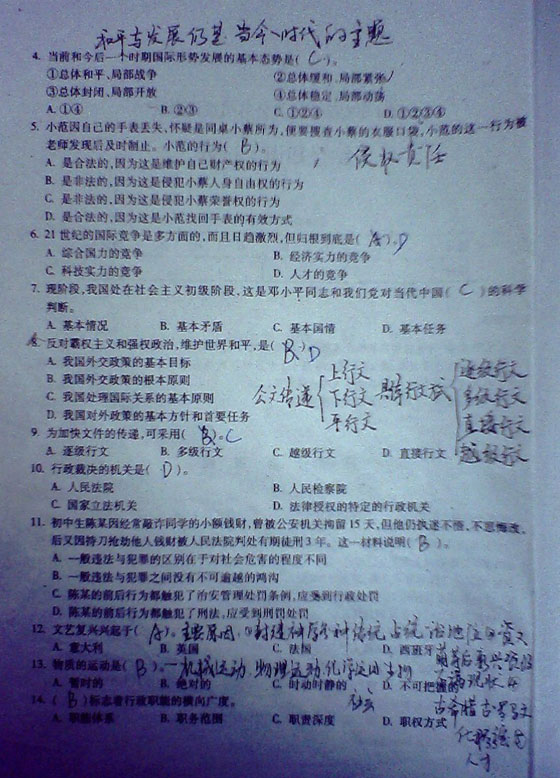 和平与发展仍是当今时代的主题
4. 当前和今后一个时期国际形势发展的基本态势是( C )。
①总体和平、局部战争 ②总体缓和、局部紧张
③总体封闭、局部开放 ④总体稳定、局部动荡
A. ①④ B. ②③ C. ①②④ D. ①②③④
5. 小范因自己的手表丢失,怀疑是同桌小蔡所为,便要搜查小蔡的衣服口袋,小范的这一行为被
老师发现后及时制止。小范的行为( B )。
侵权责任
A. 是合法的,因为这是维护自己财产权的行为
B. 是非法的,因为是侵犯小蔡人身自由权的行为
C. 是非法的,因为是侵犯小蔡荣誉权的行为
D. 是合法的,因为这是小范找回手表的有效方式
6. 21世纪的国际竞争是多方面的,而且日趋激烈,但归根到底是( A )。D
A. 综合国力的竞争 B. 经济实力的竞争
C. 科技实力的竞争 D. 人才的竞争
7. 现阶段,我国处在社会主义初级阶段,这是邓小平同志和我们党对当代中国( C )的科学
判断。
A. 基本情况 B. 基本矛盾 C. 基本国情 D. 基本任务
8. 反对霸权主义和强权政治,维护世界和平,是( B )D
A. 我国外交政策的基本目标
B. 我国外交政策的根本原则
C. 我国处理国际关系的基本原则
D. 我国对外政策的基本方针和首要任务
公文传递 上行文 下行文 平行文
逐级行文 多级行文 直接行文 越级行文
9. 为加快文件的传递,可采用( B )。C
A. 逐级行文 B. 多级行文 C. 越级行文 D. 直接行文
10. 行政裁决的机关是( D )。
A. 人民法院 B. 人民检察院
C. 国家立法机关 D. 法律授权的特定的行政机关
11. 初中生陈某因经常敲诈同学的小额钱财,曾被公安机关拘留15天,但他仍执迷不悟,不思悔改,
后又因持刀抢劫他人钱财被人民法院判处有期徒刑3年。这一材料说明( B )。
A. 一般违法与犯罪的区别在于对社会危害的程度不同
B. 一般违法与犯罪之间没有不可逾越的鸿沟
C. 陈某的前后行为都触犯了治安管理处罚条例,应受到行政处罚
D. 陈某的前后行为都触犯了刑法,应受到刑罚处罚
12. 文艺复兴兴起于( A )。主要原因
A. 意大利 B. 英国 C. 法国 D. 西班牙
13. 物质的运动是( B )。机械运动 物理运动 化学运动 生物
社会
A. 暂时的 B. 绝对的 C. 时动时静的 D. 不可把握的
14. ( B )标志着行政职能的横向广度。
A. 职能体系 B. 职务范围 C. 职责深度 D. 职权方式
人才